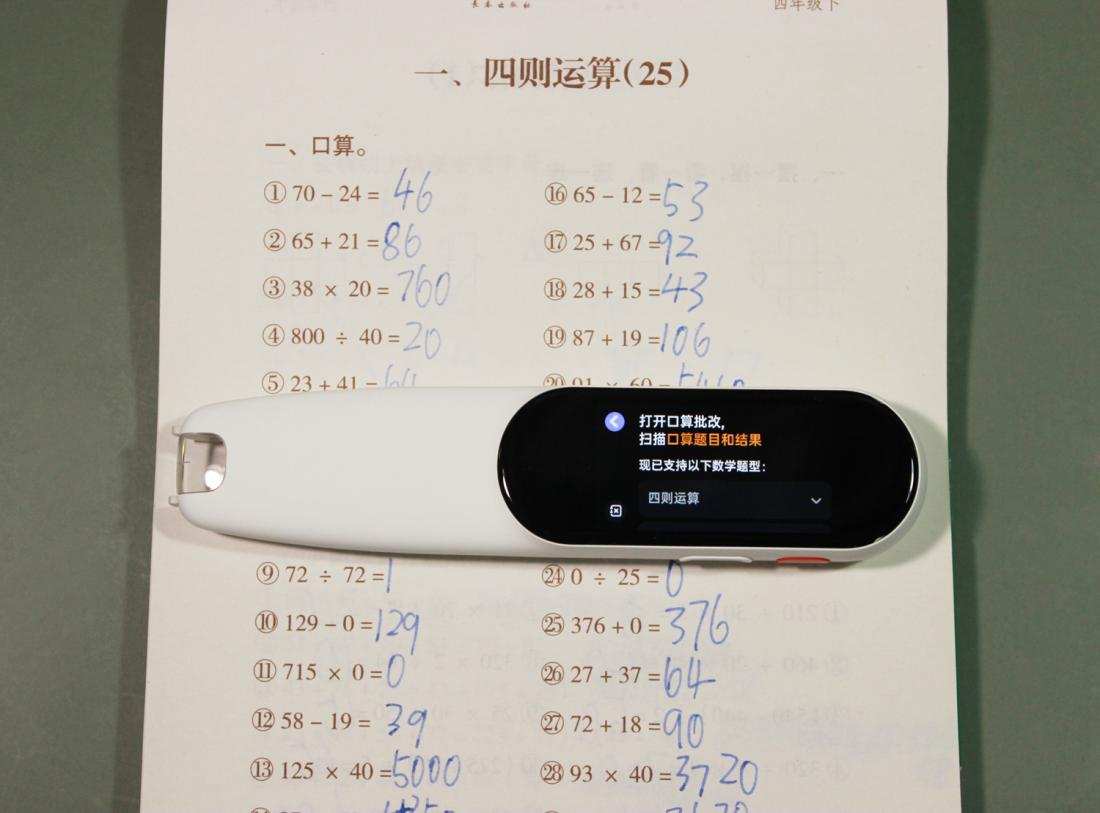 四年级下
一、四则运算(25)
一、口算。
① 70 − 24 = 46
② 65 + 21 = 86
③ 38 × 20 = 760
④ 800 ÷ 40 = 20
⑤ 23 + 41 = 64
⑯ 65 − 12 = 53
⑰ 25 + 67 = 92
⑱ 28 + 15 = 43
⑲ 87 + 19 = 106
⑳ 91 × 60 =
打开口算批改,
扫描口算题目和结果
现已支持以下数学题型:
四则运算
⑨ 72 ÷ 72 = 1
⑩ 129 − 0 = 129
⑪ 715 × 0 = 0
⑫ 58 − 19 = 39
⑬ 125 × 40 = 5000
㉔ 0 ÷ 25 = 0
㉕ 376 + 0 = 376
㉖ 27 + 37 = 64
㉗ 72 + 18 = 90
㉘ 93 × 40 = 3720